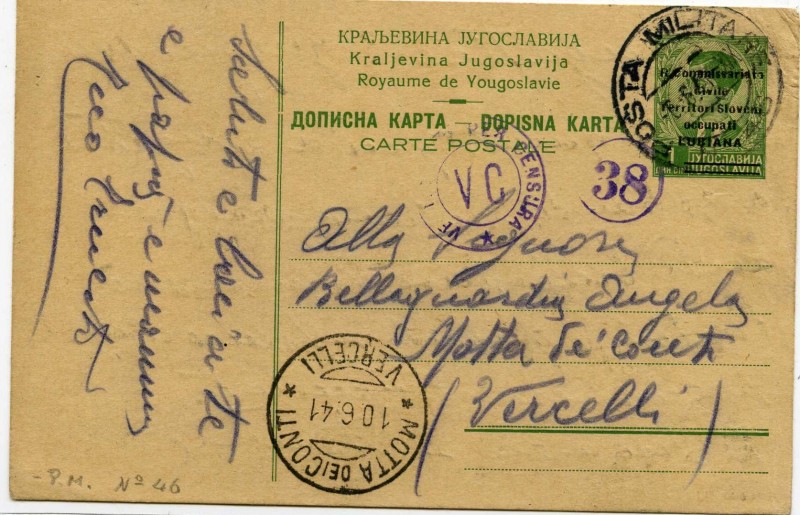 КРАЉЕВИНА ЈУГОСЛАВИЈА
Kraljevina Jugoslavija
Royaume de Yougoslavie
ДОПИСНА КАРТА — DOPISNA KARTA
CARTE POSTALE
POSTA MILITARE
R. Commissariato
Civile
Territori Sloveni
occupati
LUBIANA
1
ЈУГОСЛАВИЈА
JUGOSLAVIJA
PER CENSURA
VC
38
Alla Signora
Bellaguardia Angela
Motta de' Conti
(Vercelli)
VERCELLI
10.6.41
* MOTTA DEI CONTI *
Saluti e baci a te
e papà e mamma
- P.M. Nº 46